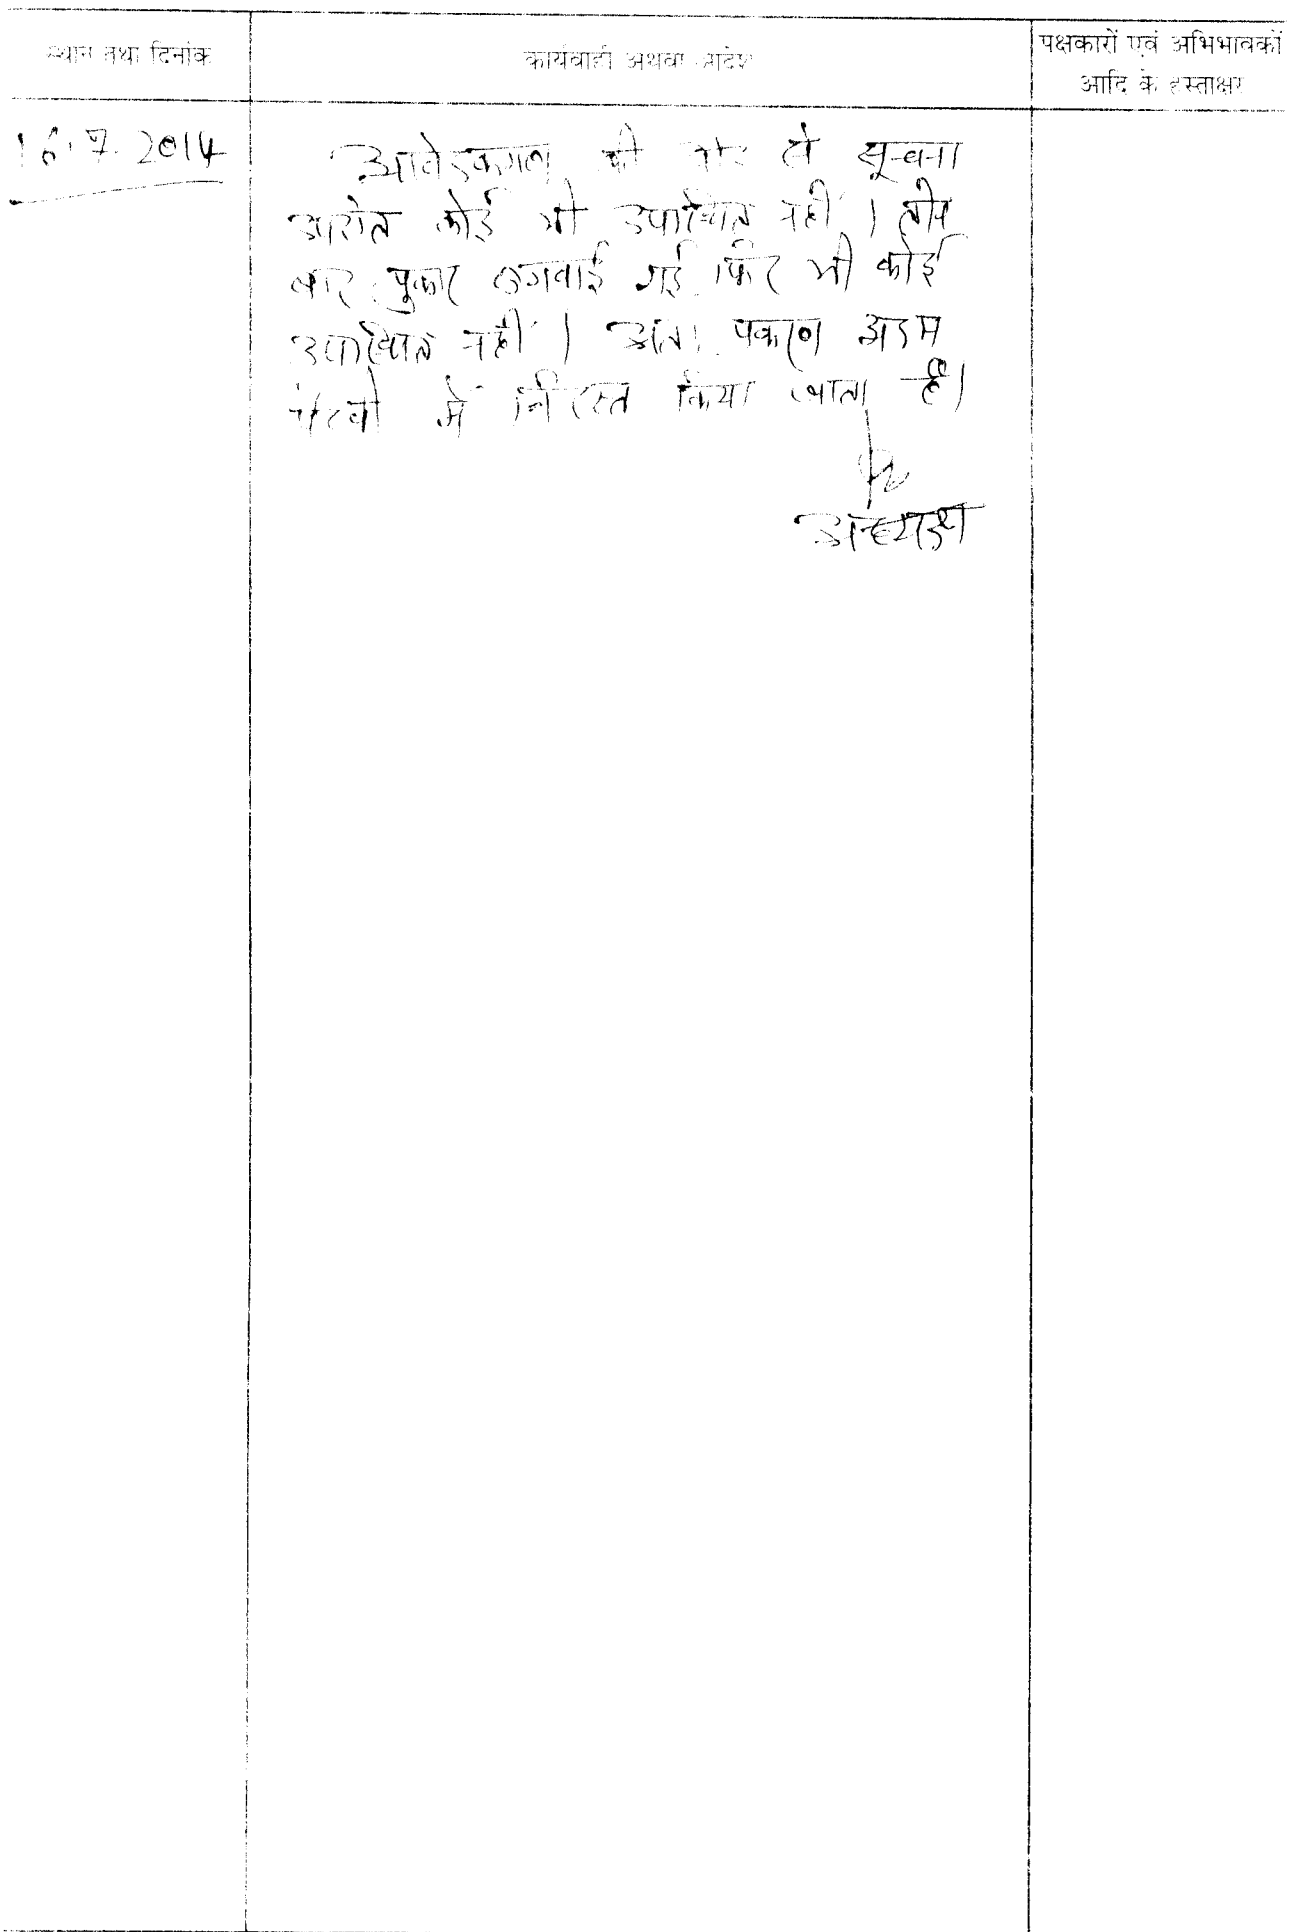 स्थान तथा दिनांक
कार्यवाही अथवा आदेश
पक्षकारों एवं अभिभावकों
आदि के हस्ताक्षर
16.7.2014
आवेदकगण की ओर से सूचना
उपरांत कोई भी उपस्थित नहीं । तीन
बार पुकार लगवाई गई फिर भी कोई
उपस्थित नहीं । अतः प्रकरण अदम
पैरवी में निरस्त किया जाता है।
अध्यक्ष